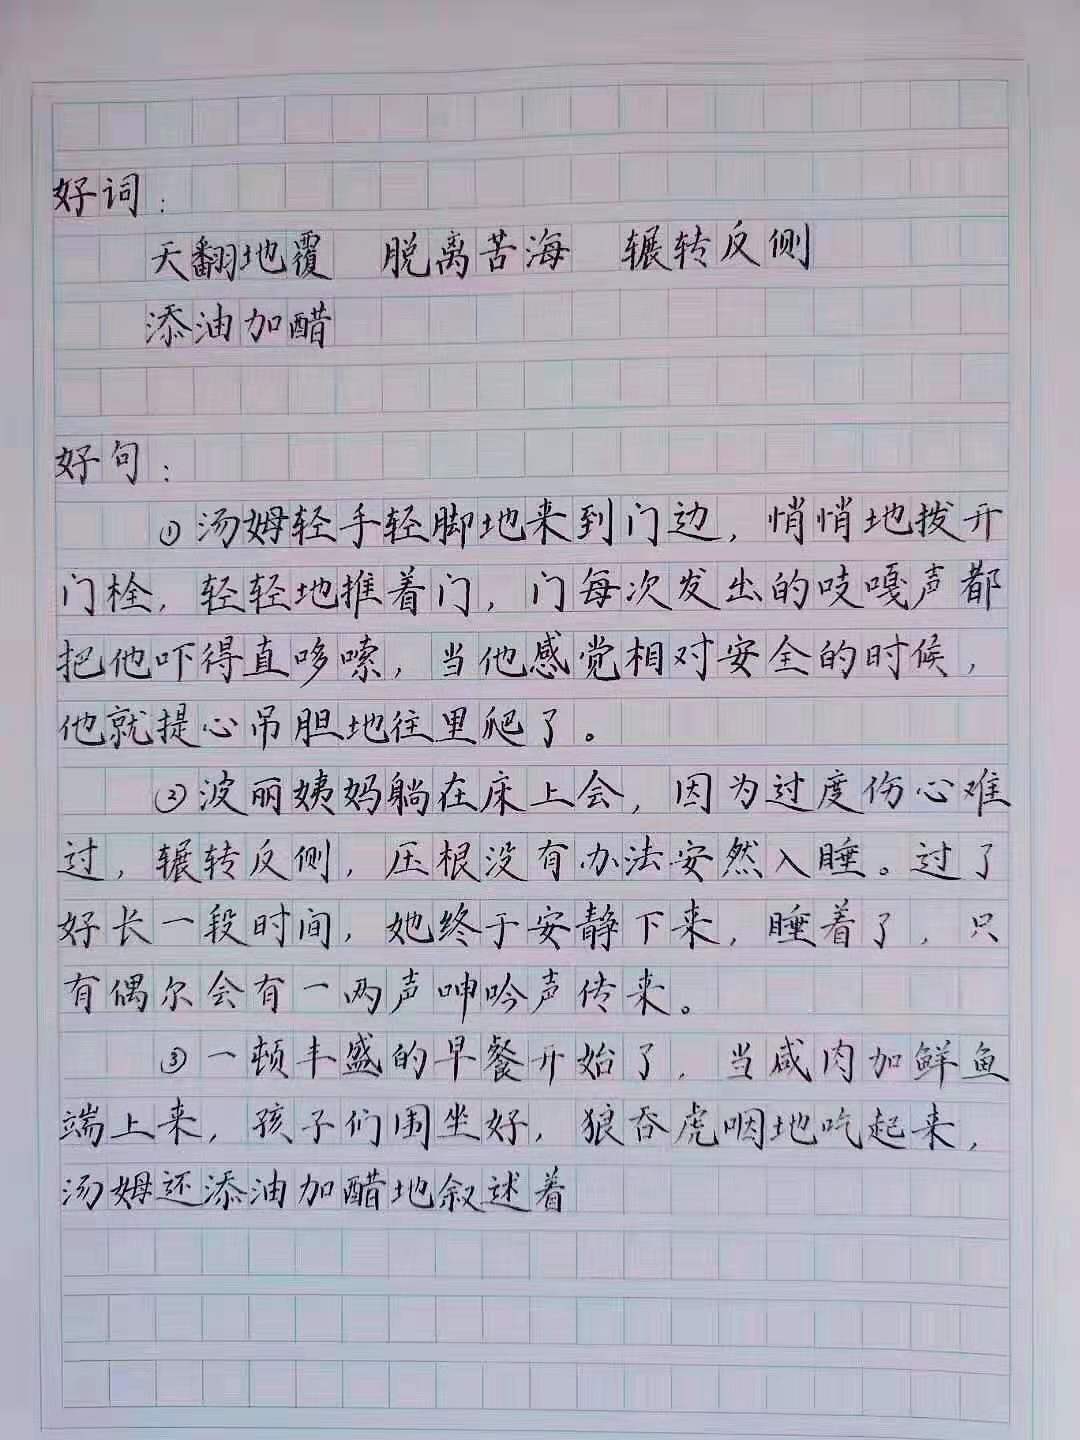 好词：
天翻地覆 脱离苦海 辗转反侧
添油加醋
好句：
①汤姆轻手轻脚地来到门边，悄悄地拨开
门栓，轻轻地推着门，门每次发出的吱嘎声都
把他吓得直哆嗦，当他感觉相对安全的时候，
他就提心吊胆地往里爬了。
②波丽姨妈躺在床上会，因为过度伤心难
过，辗转反侧，压根没有办法安然入睡。过了
好长一段时间，她终于安静下来，睡着了，只
有偶尔会有一两声呻吟声传来。
③一顿丰盛的早餐开始了，当咸肉加鲜鱼
端上来，孩子们围坐好，狼吞虎咽地吃起来，
汤姆还添油加醋地叙述着